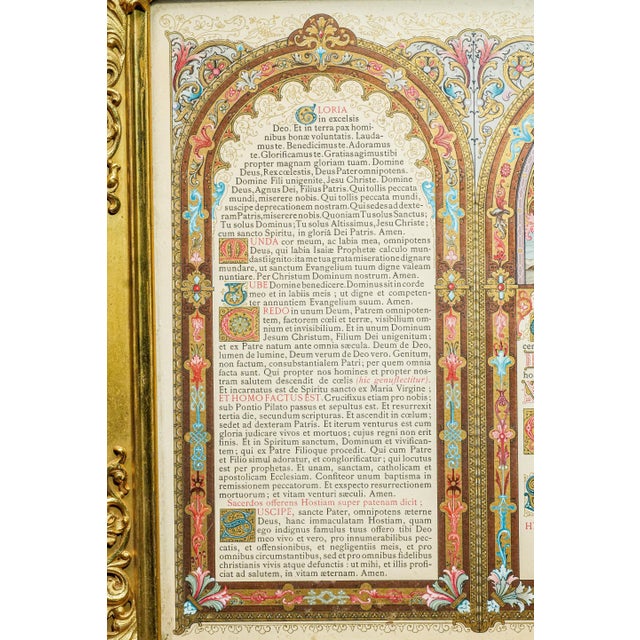 GLORIA
in excelsis
Deo. Et in terra pax homi-
nibus bonæ voluntatis. Lauda-
mus te. Benedicimus te. Adoramus
te. Glorificamus te. Gratias agimus tibi
propter magnam gloriam tuam. Domine
Deus, Rex cœlestis, Deus Pater omnipotens.
Domine Fili unigenite, Jesu Christe. Domine
Deus, Agnus Dei, Filius Patris. Qui tollis peccata
mundi, miserere nobis. Qui tollis peccata mundi,
suscipe deprecationem nostram. Qui sedes ad dexte-
ram Patris, miserere nobis. Quoniam Tu solus Sanctus;
Tu solus Dominus; Tu solus Altissimus, Jesu Christe:
cum sancto Spiritu, in gloriâ Dei Patris. Amen.
MUNDA cor meum, ac labia mea, omnipotens
Deus, qui labia Isaiæ Prophetæ calculo mun-
dasti ignito: ita me tua grata miseratione dignare
mundare, ut sanctum Evangelium tuum digne valeam
nuntiare. Per Christum Dominum nostrum. Amen.
JUBE Domine benedicere. Dominus sit in corde
meo et in labiis meis; ut digne et competen-
ter annuntiem Evangelium suum. Amen.
CREDO in unum Deum, Patrem omnipoten-
tem, factorem cœli et terræ, visibilium om-
nium et invisibilium. Et in unum Dominum
Jesum Christum, Filium Dei unigenitum;
et ex Patre natum ante omnia sæcula. Deum de Deo,
lumen de lumine, Deum verum de Deo vero. Genitum,
non factum, consubstantialem Patri; per quem omnia
facta sunt. Qui propter nos homines et propter nos-
tram salutem descendit de cœlis (hic genuflectitur).
Et incarnatus est de Spiritu sancto ex Maria Virgine;
ET HOMO FACTUS EST. Crucifixus etiam pro nobis;
sub Pontio Pilato passus et sepultus est. Et resurrexit
tertia die, secundum scripturas. Et ascendit in cœlum;
sedet ad dexteram Patris. Et iterum venturus est cum
gloria judicare vivos et mortuos; cujus regni non erit
finis. Et in Spiritum sanctum, Dominum et vivifican-
tem; qui ex Patre Filioque procedit. Qui cum Patre
et Filio simul adoratur, et conglorificatur; qui locutus
est per prophetas. Et unam, sanctam, catholicam et
apostolicam Ecclesiam. Confiteor unum baptisma in
remissionem peccatorum. Et expecto resurrectionem
mortuorum; et vitam venturi sæculi. Amen.
Sacerdos offerens Hostiam super patenam dicit;
SUSCIPE, sancte Pater, omnipotens æterne
Deus, hanc immaculatam Hostiam, quam
ego indignus famulus tuus offero tibi Deo
meo vivo et vero, pro innumerabilibus pec-
catis, et offensionibus, et negligentiis meis, et pro
omnibus circumstantibus, sed et pro omnibus fidelibus
christianis vivis atque defunctis: ut mihi, et illis profi-
ciat ad salutem, in vitam æternam. Amen.